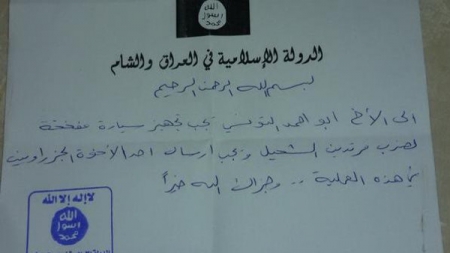 الله
رسول
محمد
الدولة الإسلامية في العراق والشام
بسم الله الرحمن الرحيم
الى الأخ ابو احمد التونسي يجب تجهيز سيارة مفخخة
لضرب مرتدين الشحيل ويجب ارسال احد الأخوة الجزراويين
لهذه العملية .. وجزاك الله خيراً
لا إله إلا الله
الله
رسول
محمد